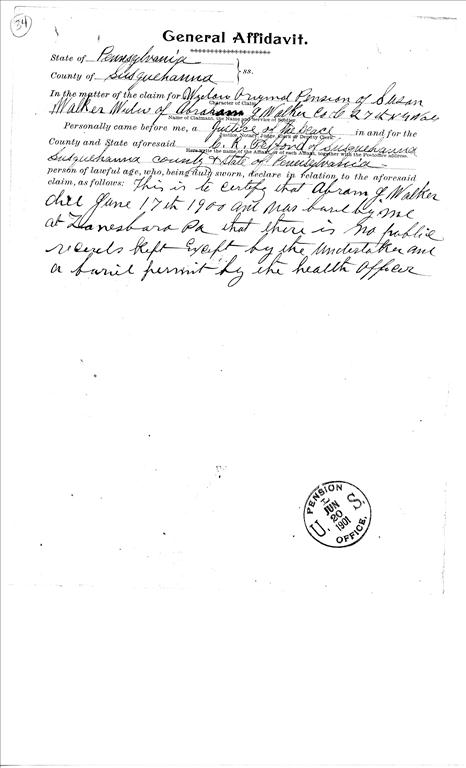 34
General Affidavit.
State of Pennsylvania
County of Susquehanna } ss.
In the matter of the claim for Widow Original Pension of Susan
Character of Claim
Walker Widow of Abraham J Walker Co. C 27th N.Y. Vol
Name of Claimant, the Name and Service of Soldier.
Personally came before me, a Justice of the Peace in and for the
Justice, Notary, Judge, Clerk or Deputy Clerk.
County and State aforesaid C. R. of Susquehanna
Here write the name of the Affiant, or of each Affiant, together with the Post-office address.
Susquehanna County & State of Pennsylvania
person of lawful age, who, being duly sworn, declare in relation to the aforesaid
claim, as follows: This is to certify that Abram J. Walker
died June 17th 1900 and was buried by me
at Lanesboro Pa that there is no public
records kept except by the undertaker and
a burial permit by the health officer
U. S. PENSION OFFICE.
JUN
20
1901